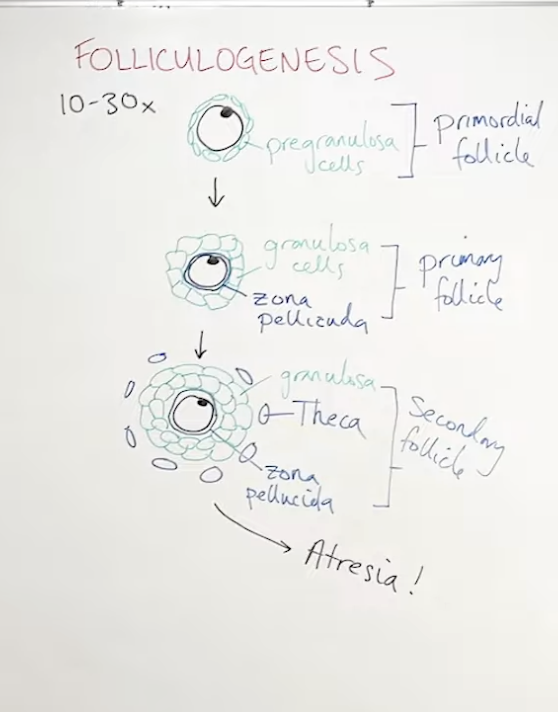 FOLLICULOGENESIS
10-30x
pregranulosa
cells
primordial
follicle
granulosa
cells
zona
pellizuda
primary
follicle
granulosa
Theca
zona
pellucida
Secondary
follicle
Atresia!